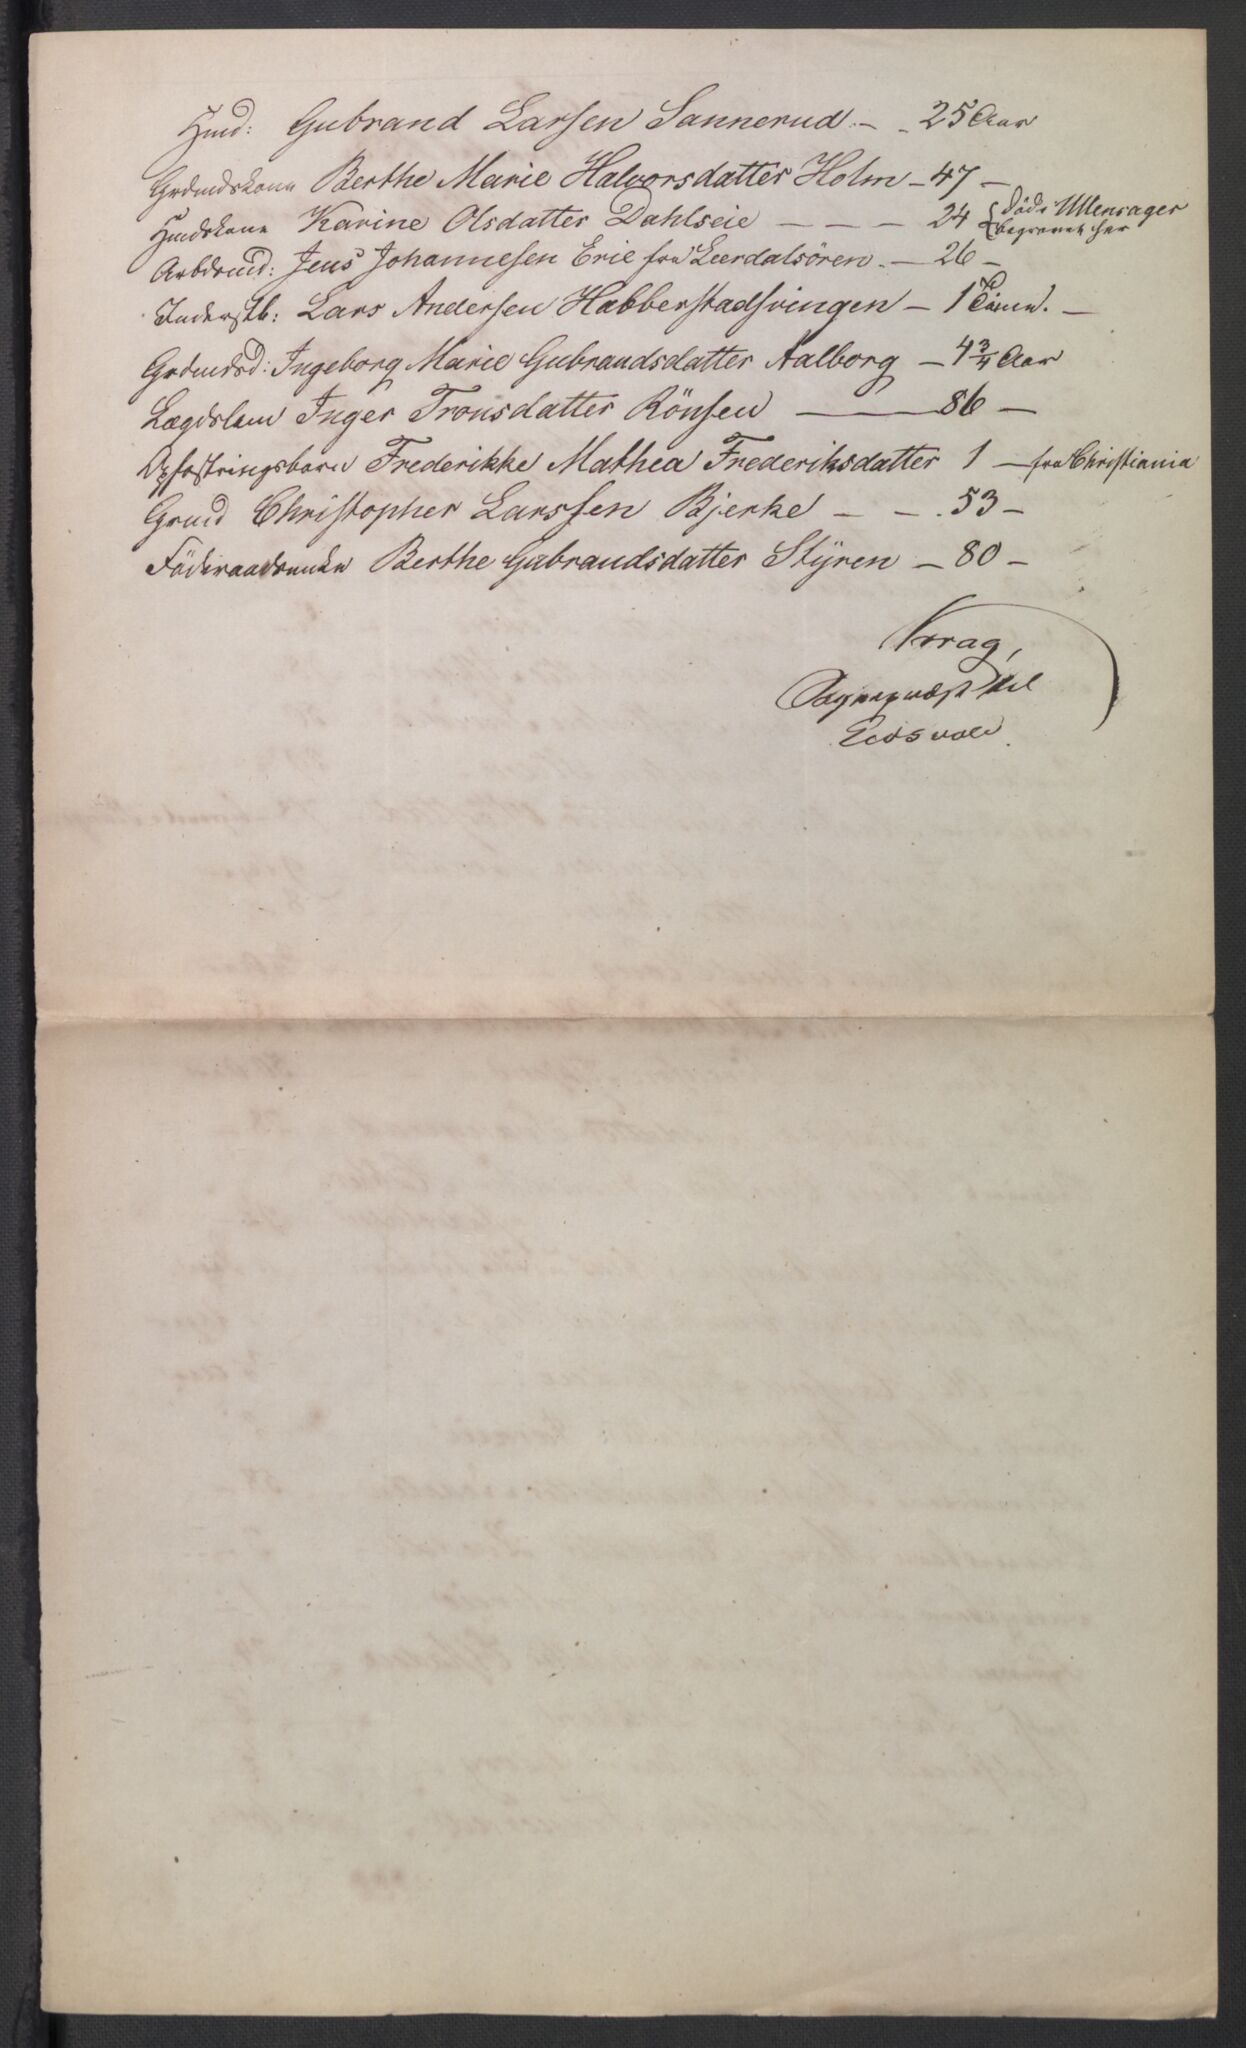 Hmd: Gubrand Larsen Sannerud. — 25 Aar
Grdmdskone Berthe Marie Halvorsdatter Holm — 47 —
Hmdskone Karine Olsdatter Dahlseie — — — 24 {död i Ullensager
begravet her
Arbdsmd: Jens Johannesen Erie fra Leerdalsören. — 26 —
Inderstb: Lars Andersen Habberstadsvingen — 1 Time. —
Grdmdsd: Ingeborg Marie Gubrandsdatter Aalborg — 4 3/4 Aar
Lægdslem Inger Tronsdatter Rönsen — 86 —
Opfostringsbarn Frederikke Mathea Frederiksdatter 1 — fra Christiania
Grmd Christopher Larssen Bjerke — — . 53 —
Föderaadsenke Berthe Gubrandsdatter Styren — 80 —
Wrag,
Sognepræst til
Eidsvold